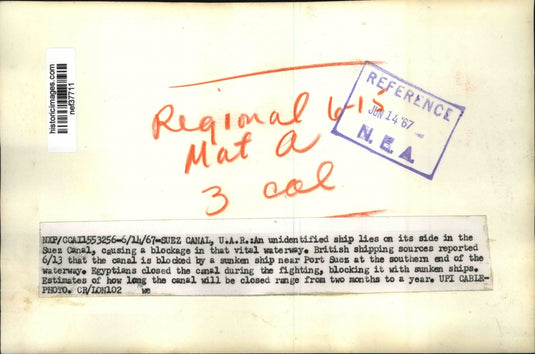 historicimages.com
nef37711
Regional 6-15
Mat A
3 col
REFERENCE
JUN 14 '67
N. E. A.
NXP/CCAI1553256-6/14/67-SUEZ CANAL, U.A.R.:An unidentified ship lies on its side in the
Suez Canal, causing a blockage in that vital waterway. British shipping sources reported
6/13 that the canal is blocked by a sunken ship near Port Suez at the southern end of the
waterway. Egyptians closed the canal during the fighting, blocking it with sunken ships.
Estimates of how long the canal will be closed range from two months to a year. UPI CABLE-
PHOTO. CR/LON102 wc